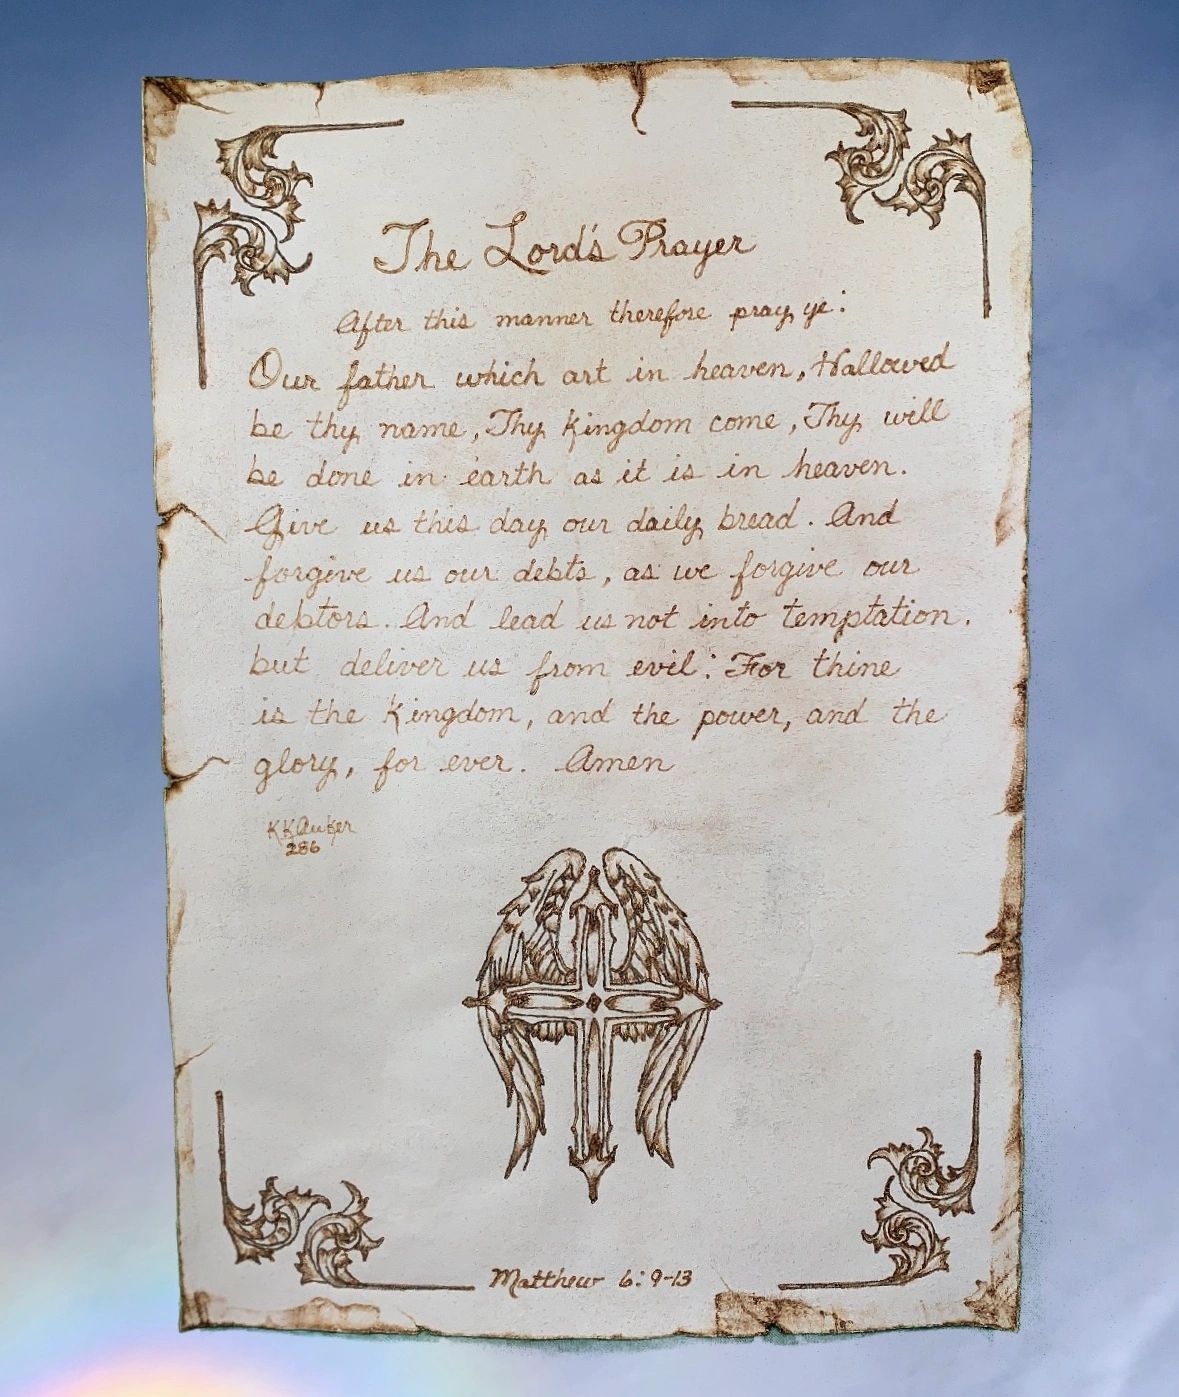 The Lord's Prayer
After this manner therefore pray ye:
Our father which art in heaven, Hallowed
be thy name, Thy Kingdom come, Thy will
be done in earth as it is in heaven.
Give us this day our daily bread. And
forgive us our debts, as we forgive our
debtors. And lead us not into temptation.
but deliver us from evil: For thine
is the Kingdom, and the power, and the
glory, for ever. Amen
KKAuker
286
Matthew 6:9-13